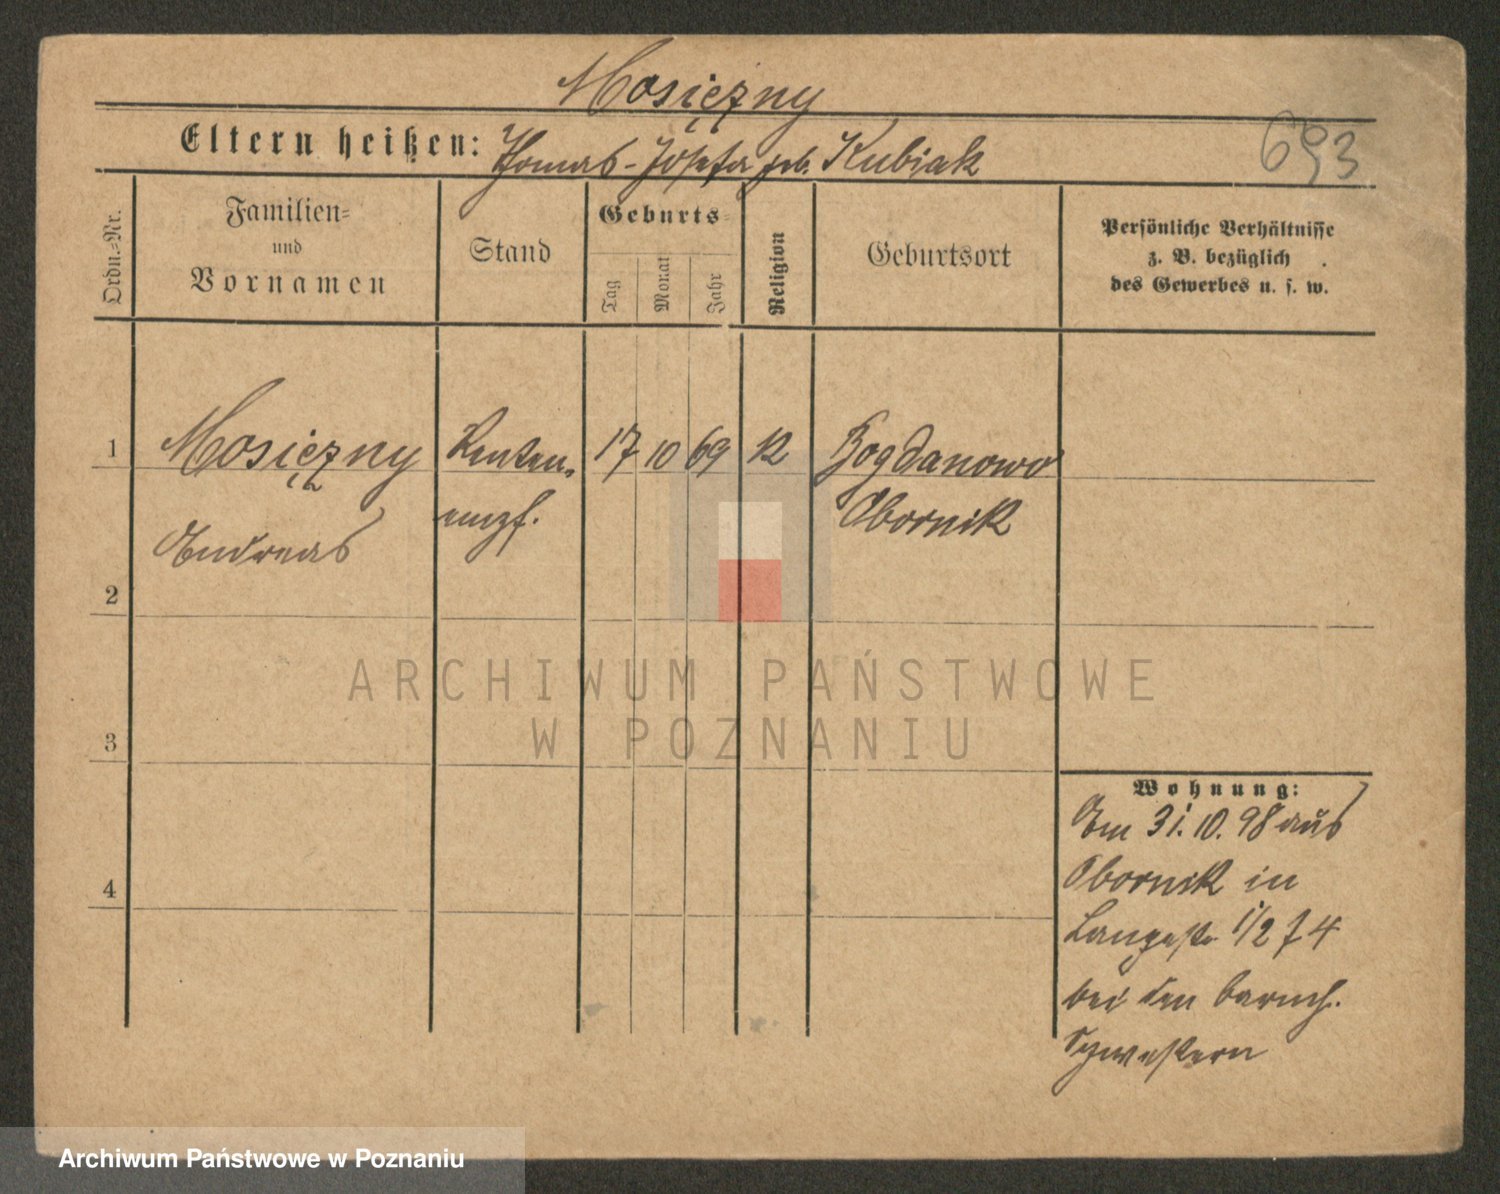 Mosiężny
693
Eltern heißen: Thomas - Josefa geb. Kubiak
Ordn.=Nr.
Familien=
und
Vornamen
Stand
Geburts=
Tag
Monat
Jahr
Religion
Geburtsort
Persönliche Verhältnisse
z. B. bezüglich
des Gewerbes u. s. w.
1 Mosiężny Renten= 17 10 69 K Bogdanowo
empf. Obornik
Andreas
2
3
4
Wohnung:
Am 31.10.98 aus
Obornik in
Langestr 1/2 74
bei den barmh.
Schwestern
ARCHIWUM PAŃSTWOWE
W POZNANIU
Archiwum Państwowe w Poznaniu